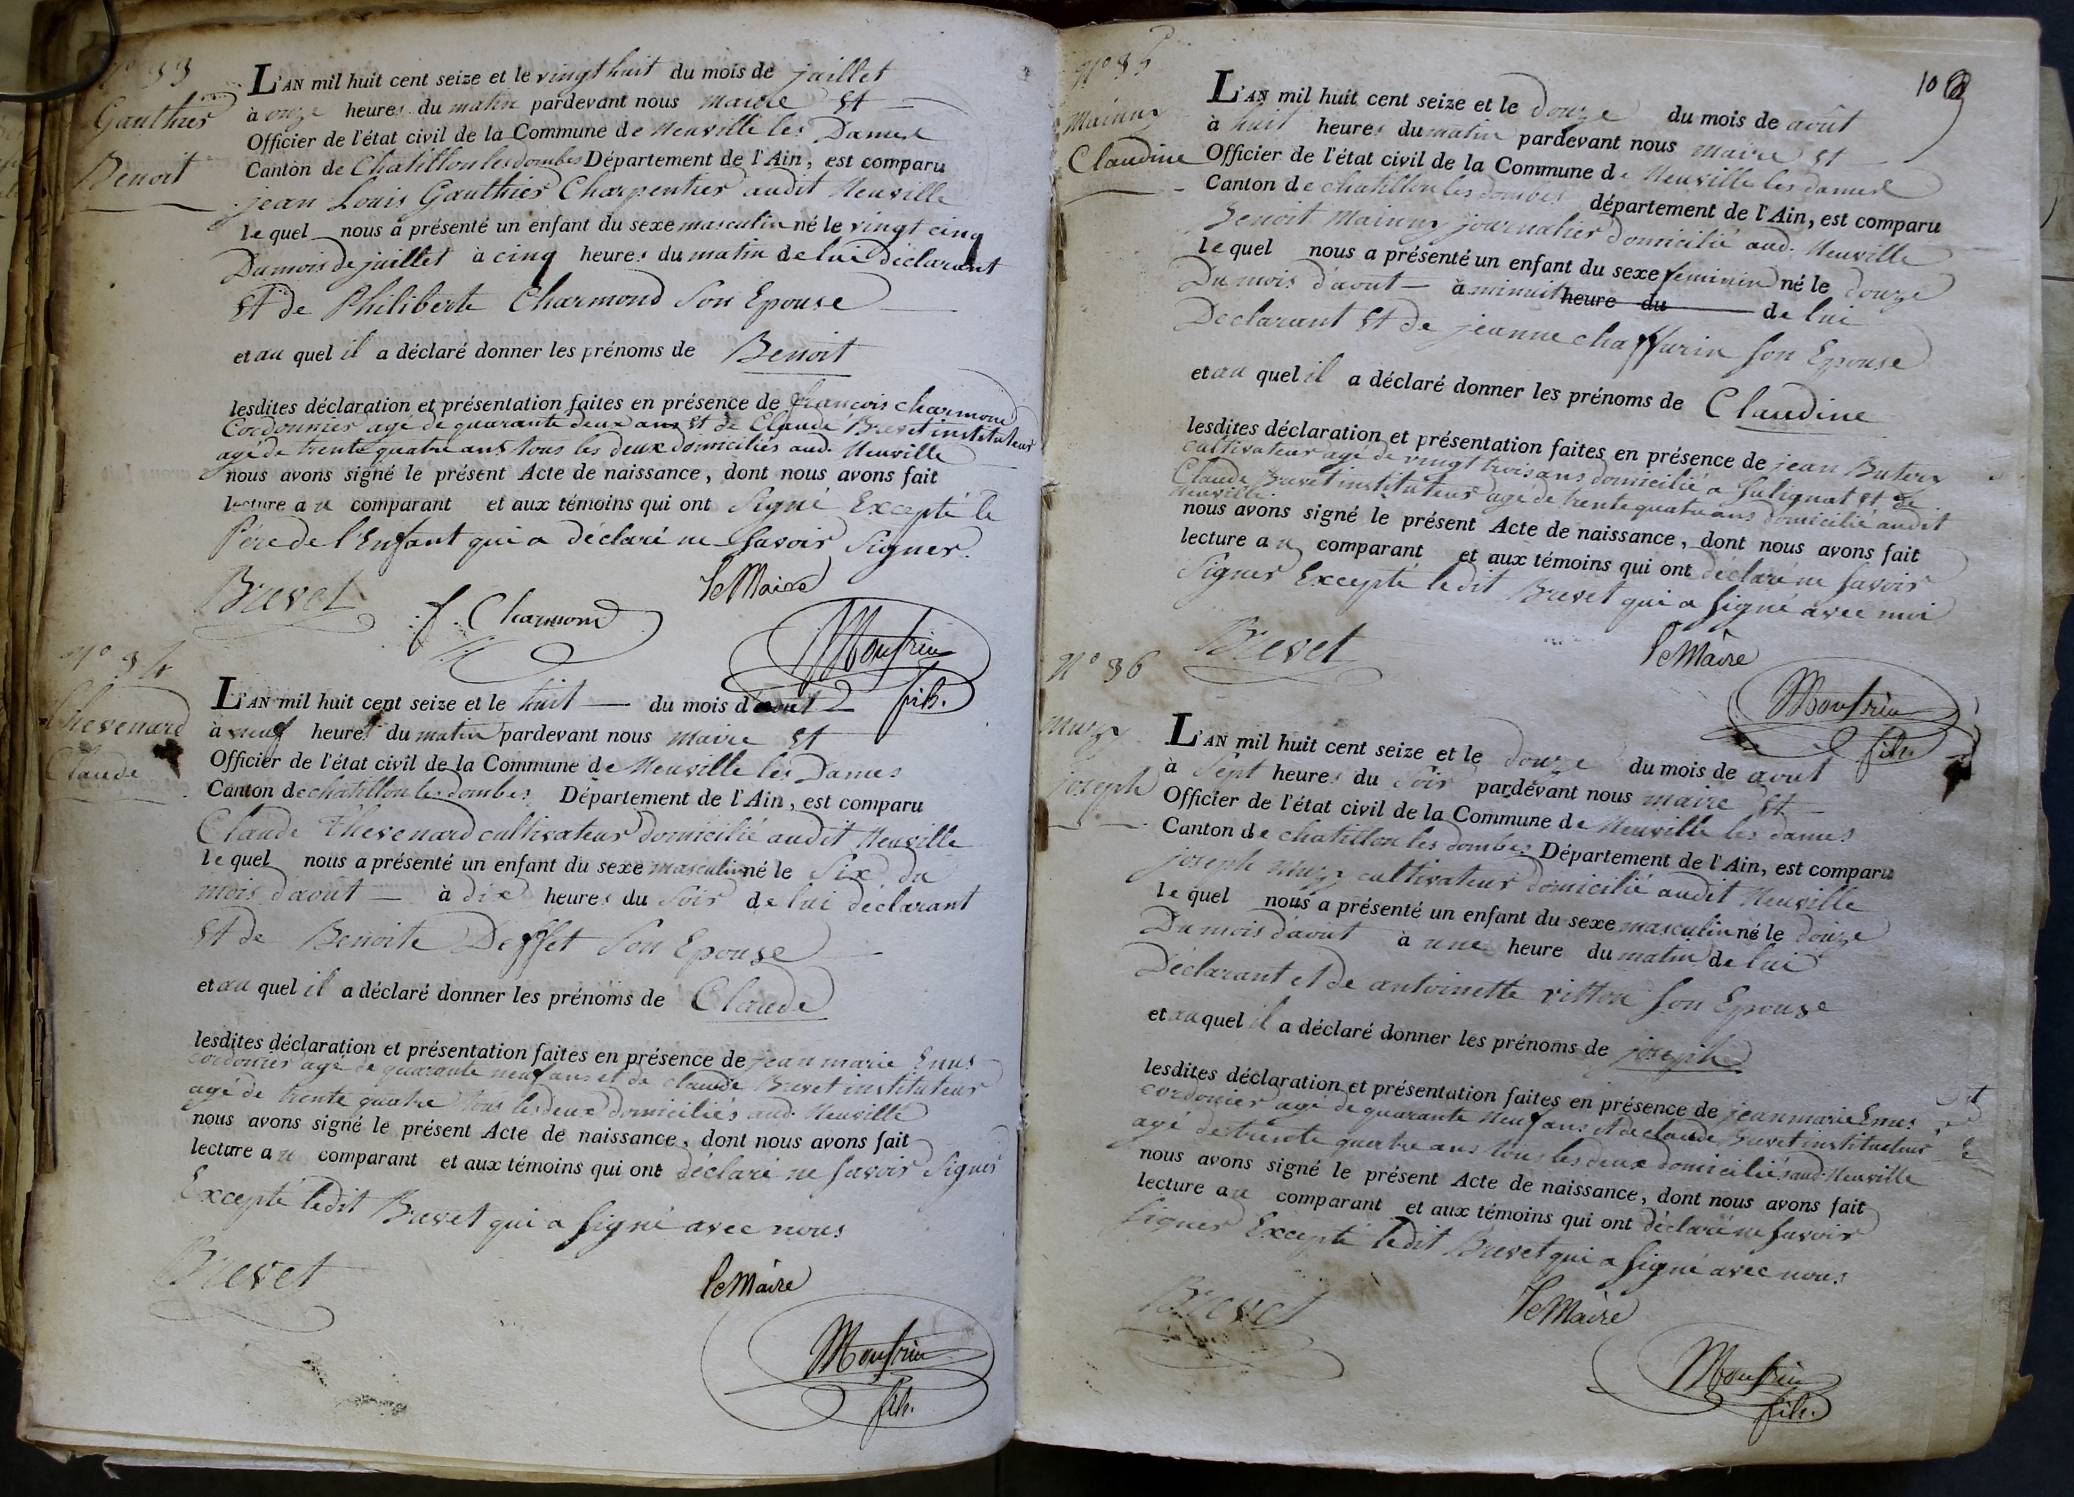 N° 33
Gauthier
Benoit
L'AN mil huit cent seize et le vingt huit du mois de juillet
à onze heures du matin pardevant nous maire Et
Officier de l'état civil de la Commune de Neuville les Dames
Canton de Chatillon les dombes Département de l'Ain, est comparu
jean Louis Gauthier Charpentier audit Neuville
lequel nous a présenté un enfant du sexe masculin né le vingt cinq
Du mois de juillet à cinq heures du matin de lui déclarant
Et de Philiberte Charmond Son Epouse
et au quel il a déclaré donner les prénoms de Benoit
lesdites déclaration et présentation faites en présence de francois charmond
Cordonnier agé de quarante deux ans Et de Claude Brevet instituteur
agé de trente quatre ans tous les deux domiciliés aud. Neuville
nous avons signé le présent Acte de naissance, dont nous avons fait
lecture au comparant et aux témoins qui ont Signé Excepté le
Pére de l'Enfant qui a déclaré ne Savoir Signer.
Brevet
f. Charmond
le Maire
Monfrin
fils.
N° 34
Thevenard
Claude
L'AN mil huit cent seize et le huit du mois d'aout
à neuf heures du matin pardevant nous maire Et
Officier de l'état civil de la Commune de Neuville les Dames
Canton de chatillon les dombes Département de l'Ain, est comparu
Claude Thevenard cultivateur domicilié audit Neuville
lequel nous a présenté un enfant du sexe masculin né le Six du
mois d'aout à dix heures du Soir de lui déclarant
Et de Benoite Deffet Son Epouse
et au quel il a déclaré donner les prénoms de Claude
lesdites déclaration et présentation faites en présence de jean marie
cordonier agé de quarante neuf ans et de claude Brevet instituteur
agé de trente quatre tous les deux domiciliés aud. Neuville
nous avons signé le présent Acte de naissance, dont nous avons fait
lecture au comparant et aux témoins qui ont déclaré ne Savoir Signer
Excepté ledit Brevet qui a Signé avec nous
Brevet
le Maire
Monfrin
fils.
10
N° 35
Mainny
Claudine
L'AN mil huit cent seize et le douze du mois de août
à huit heures du matin pardevant nous maire Et
Officier de l'état civil de la Commune de Neuville les dames
Canton de chatillon les dombes département de l'Ain, est comparu
Benoit Mainny journalier domicilié aud. Neuville
lequel nous a présenté un enfant du sexe feminin né le douze
Du mois d'aout à minuit heure du de lui
Declarant Et de jeanne chaffurin Son Epouse
et au quel il a déclaré donner les prénoms de Claudine
lesdites déclaration et présentation faites en présence de jean Butery
cultivateur agé de vingt trois ans domicilié a Sulignat Et de
Claude Brevet instituteur agé de trente quatre ans domicilié audit
Neuville.
nous avons signé le présent Acte de naissance, dont nous avons fait
lecture au comparant et aux témoins qui ont déclaré ne Savoir
Signer Excepté ledit Brevet qui a Signé avec moi
Brevet
le Maire
Monfrin
fils.
N° 36
Muzy
joseph
L'AN mil huit cent seize et le douze du mois de aout
à Sept heures du Soir pardevant nous maire Et
Officier de l'état civil de la Commune de Neuville les dames
Canton de chatillon les dombes Département de l'Ain, est comparu
joseph Muzy cultivateur domicilié audit Neuville
lequel nous a présenté un enfant du sexe masculin né le douze
Du mois d'aout à une heure du matin de lui
Déclarant et de antoinette vitton Son Epouse
et au quel il a déclaré donner les prénoms de joseph
lesdites déclaration et présentation faites en présence de jean marie
cordonier agé de quarante neuf ans et de claude Brevet instituteur
agé de trente quatre ans tous les deux domiciliés aud. Neuville
nous avons signé le présent Acte de naissance, dont nous avons fait
lecture au comparant et aux témoins qui ont déclaré ne Savoir
Signer Excepté ledit Brevet qui a Signé avec nous
Brevet
le Maire
Monfrin
fils.